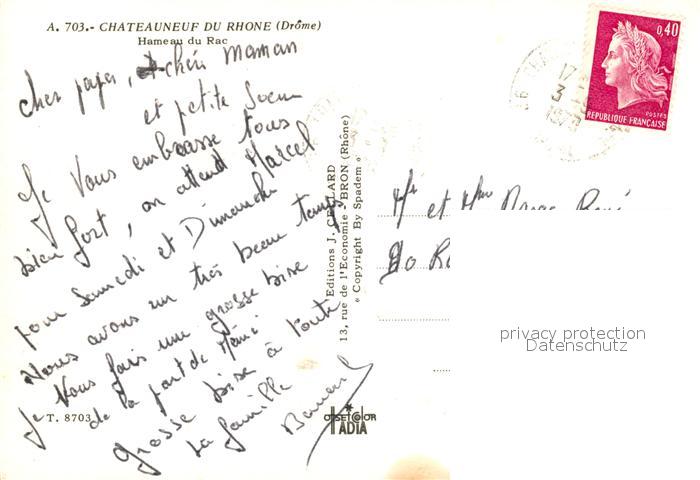 A. 703.- CHATEAUNEUF DU RHONE (Drôme)
Hameau du Rac
Cher papa, chéri Maman
et petite Soeur
Je Vous embrasse tous
bien fort, on attend Marcel
pour Samedi et Dimanche
Nous avons un très beau temps
Je Vous fais une grosse bise
de la part de Mémé
grosse bise à toute
la famille
T. 8703
OFFSETCOLOR
IADIA
Editions J. CELLARD
13, rue de l'Economie - BRON (Rhône)
« Copyright By Spadem »
17
3
197
0,40
POSTES
REPUBLIQUE FRANÇAISE
Mr et Mme René
privacy protection
Datenschutz